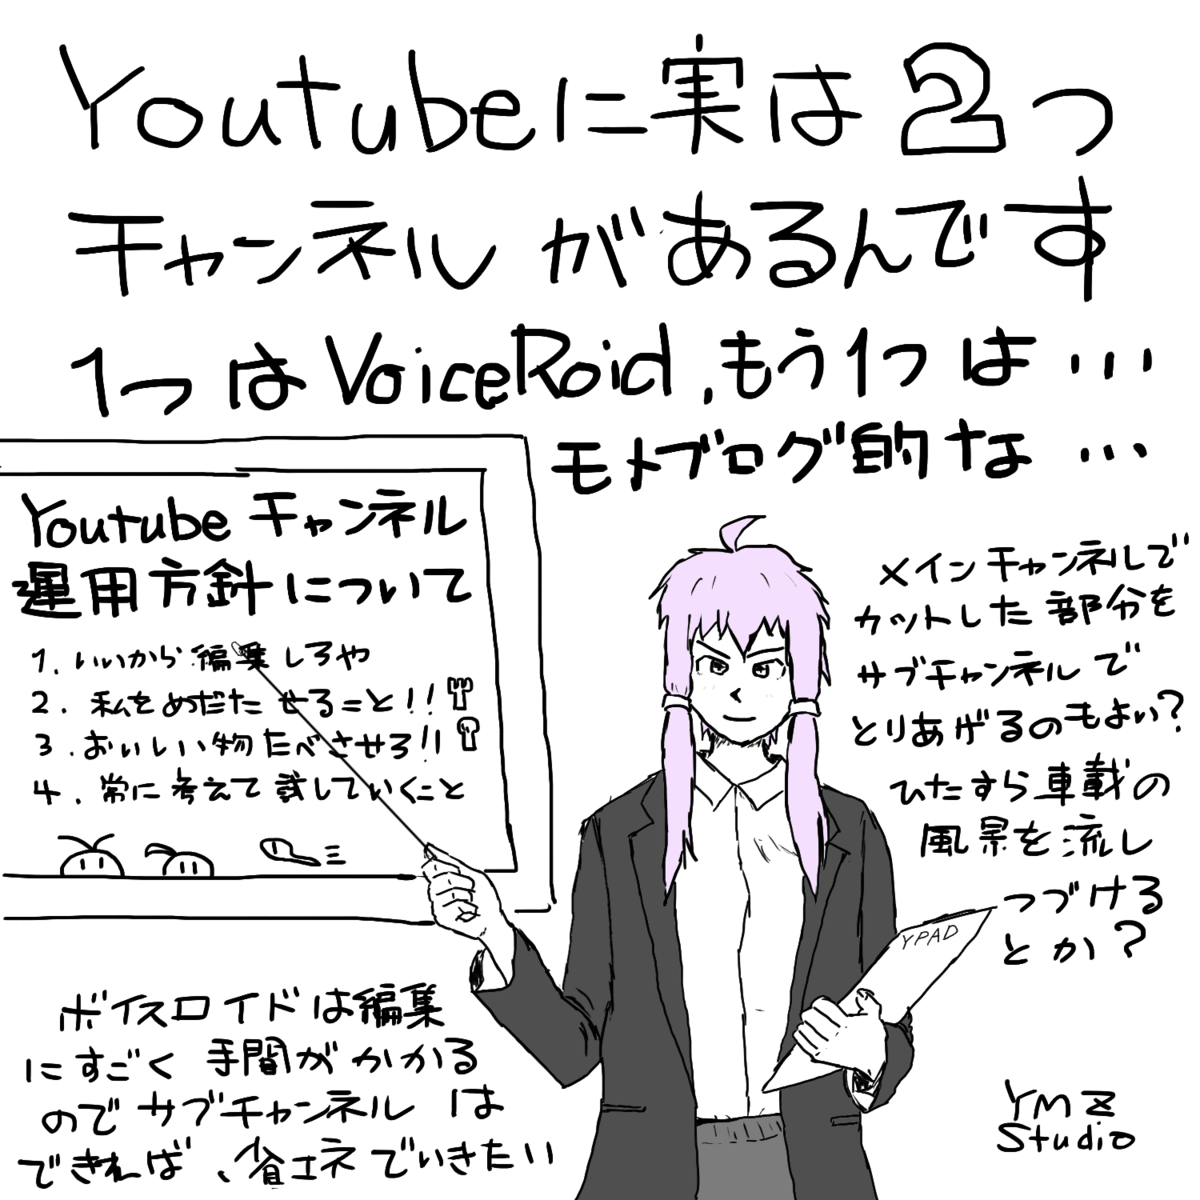 Youtubeに実は2つ
チャンネルがあるんです
1つはVoiceRoid,もう1つは…
モトブログ的な…
Youtubeチャンネル
運用方針について
1.いいから編集しろや
2.私をめだたせること!!
3.おいしい物たべさせろ!!
4.常に考えて試していくこと
メインチャンネルで
カットした部分を
サブチャンネルで
とりあげるのもよい?
ひたすら車載の
風景を流し
つづける
とか?
YPAD
ボイスロイドは編集
にすごく手間がかかる
のでサブチャンネルは
できれば、省エネでいきたい
YMZ
Studio